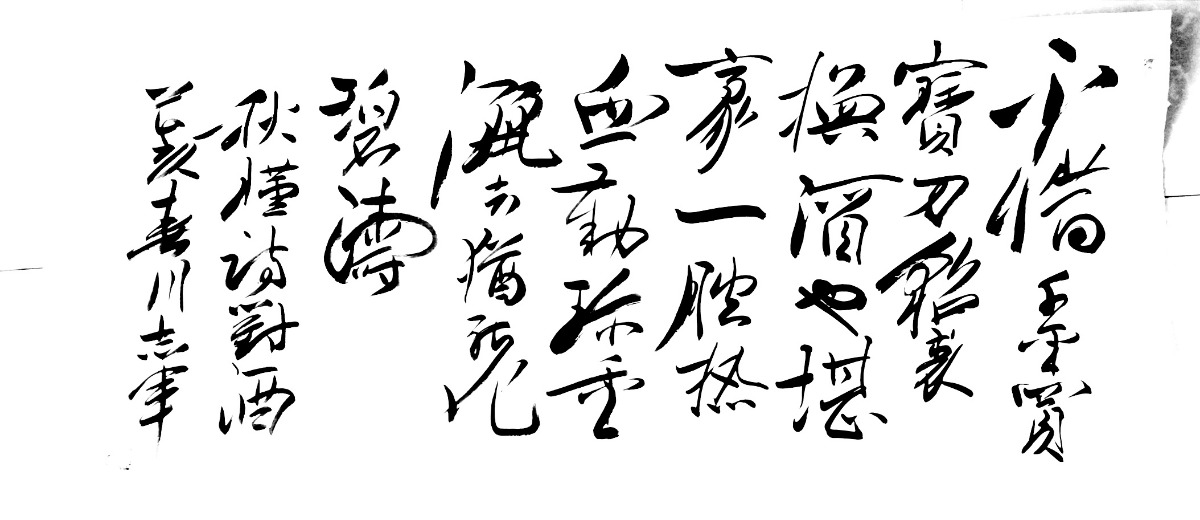 不惜千金買
寶刀貂裘
換酒也堪
豪一腔熱
血勤珍重
灑去猶能化
碧濤
秋瑾詩對酒
春川志軍